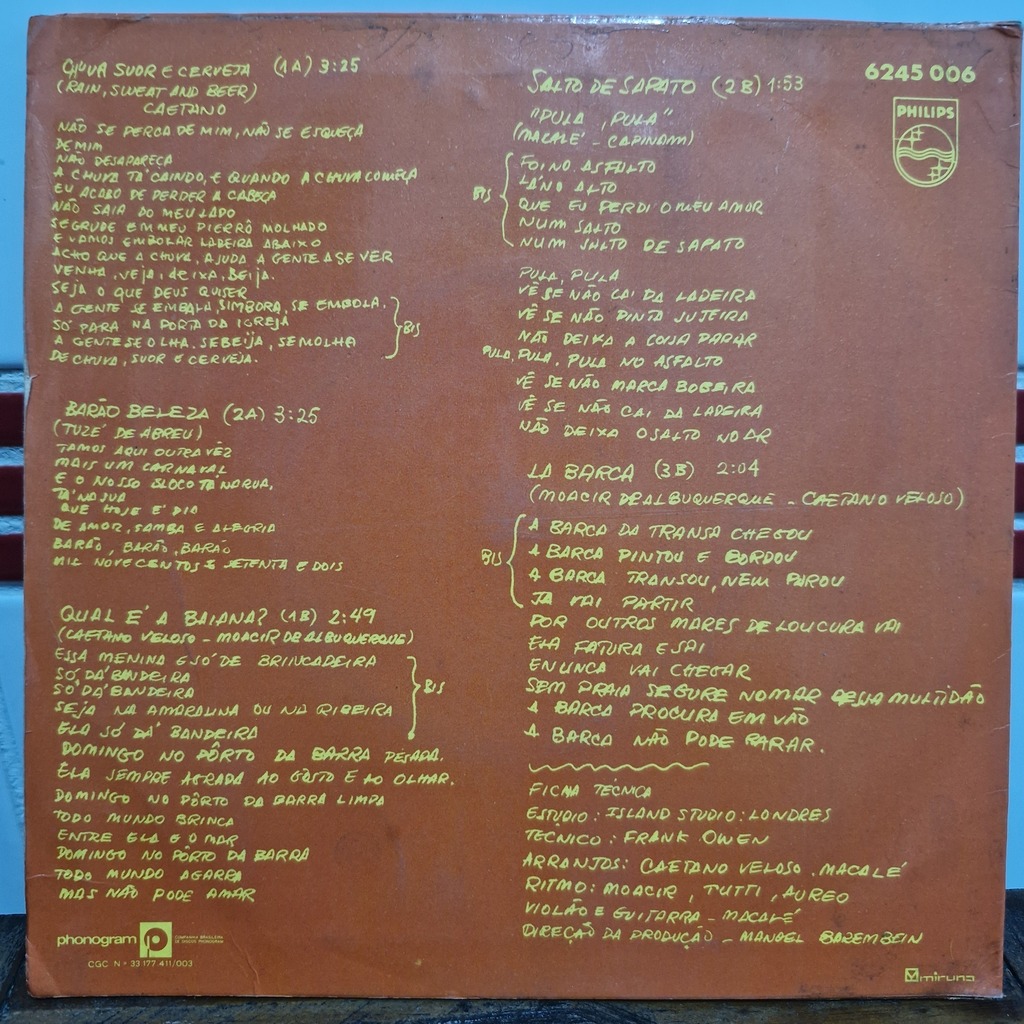 CHUVA SUOR E CERVEJA (1A) 3:25
(RAIN, SWEAT AND BEER)
CAETANO
NÃO SE PERCA DE MIM, NÃO SE ESQUEÇA
DE MIM
NÃO DESAPAREÇA
A CHUVA TÁ CAINDO, E QUANDO A CHUVA COMEÇA
EU ACABO DE PERDER A CABEÇA
NÃO SAIA DO MEU LADO
SEGRUDE EM MEU PIERRÔ MOLHADO
E VAMOS EMBOLAR LADEIRA ABAIXO
ACHO QUE A CHUVA, AJUDA A GENTE A SE VER
VENHA, VEJA, DEIXA, BEIJA.
SEJA O QUE DEUS QUISER
A GENTE SE EMBALA, SIMBORA, SE EMBOLA,
SÓ PARA NA PORTA DA IGREJA
A GENTE SE OLHA, SE BEIJA, SE MOLHA
DE CHUVA, SUOR E CERVEJA.
BIS
BARÃO BELEZA (2A) 3:25
(TUZÉ DE ABREU)
TAMOS AQUI OUTRA VEZ
MAIS UM CARNAVAL
E O NOSSO BLOCO TÁ NA RUA,
TÁ NA SUA
QUE HOJE É DIA
DE AMOR, SAMBA E ALEGRIA
BARÃO, BARÃO, BARÃO
MIL NOVECENTOS E SETENTA E DOIS
QUAL É A BAIANA? (1B) 2:49
(CAETANO VELOSO - MOACIR DE ALBUQUERQUE)
ESSA MENINA É SÓ DE BRINCADEIRA
SÓ DÁ BANDEIRA
SÓ DÁ BANDEIRA
SEJA NA AMARALINA OU NA RIBEIRA
ELA SÓ DÁ BANDEIRA
BIS
DOMINGO NO PÔRTO DA BARRA PESADA.
ÊLA SEMPRE AGRADA AO GÔSTO E AO OLHAR.
DOMINGO NO PÔRTO DA BARRA LIMPA
TODO MUNDO BRINCA
ENTRE ELA E O MAR
DOMINGO NO PÔRTO DA BARRA
TODO MUNDO AGARRA
MAS NÃO PODE AMAR
phonogram
COMPANHIA BRASILEIRA
DE DISCOS PHONOGRAM
CGC Nº 33.177.411/003
SALTO DE SAPATO (2B) 1:53
"PULA, PULA"
(MACALÉ - CAPINAM)
FOI NO ASFALTO
LÁ NO ALTO
QUE EU PERDI O MEU AMOR
NUM SALTO
NUM SALTO DE SAPATO
BIS
PULA, PULA
VÊ SE NÃO CAI DA LADEIRA
VÊ SE NÃO PINTA SUJEIRA
NÃO DEIXA A COISA PARAR
PULA, PULA, PULA NO ASFALTO
VÊ SE NÃO MARCA BOBEIRA
VÊ SE NÃO CAI DA LADEIRA
NÃO DEIXA O SALTO NO AR
LA BARCA (3B) 2:04
(MOACIR DE ALBUQUERQUE - CAETANO VELOSO)
A BARCA DA TRANSA CHEGOU
A BARCA PINTOU E BORDOU
A BARCA TRANSOU, NEM PAROU
JÁ VAI PARTIR
BIS
POR OUTROS MARES DE LOUCURA VAI
ELA FATURA E SAI
E NUNCA VAI CHEGAR
SEM PRAIA SEGURE NO MAR DESSA MULTIDÃO
A BARCA PROCURA EM VÃO
A BARCA NÃO PODE PARAR.
FICHA TÉCNICA
ESTUDIO: ISLAND STUDIO: LONDRES
TÉCNICO: FRANK OWEN
ARRANJOS: CAETANO VELOSO. MACALÉ
RITMO: MOACIR, TUTTI, AUREO
VIOLÃO E GUITARRA - MACALÉ
DIREÇÃO DA PRODUÇÃO - MANOEL BAREMBEIN
6245 006
PHILIPS
miruna